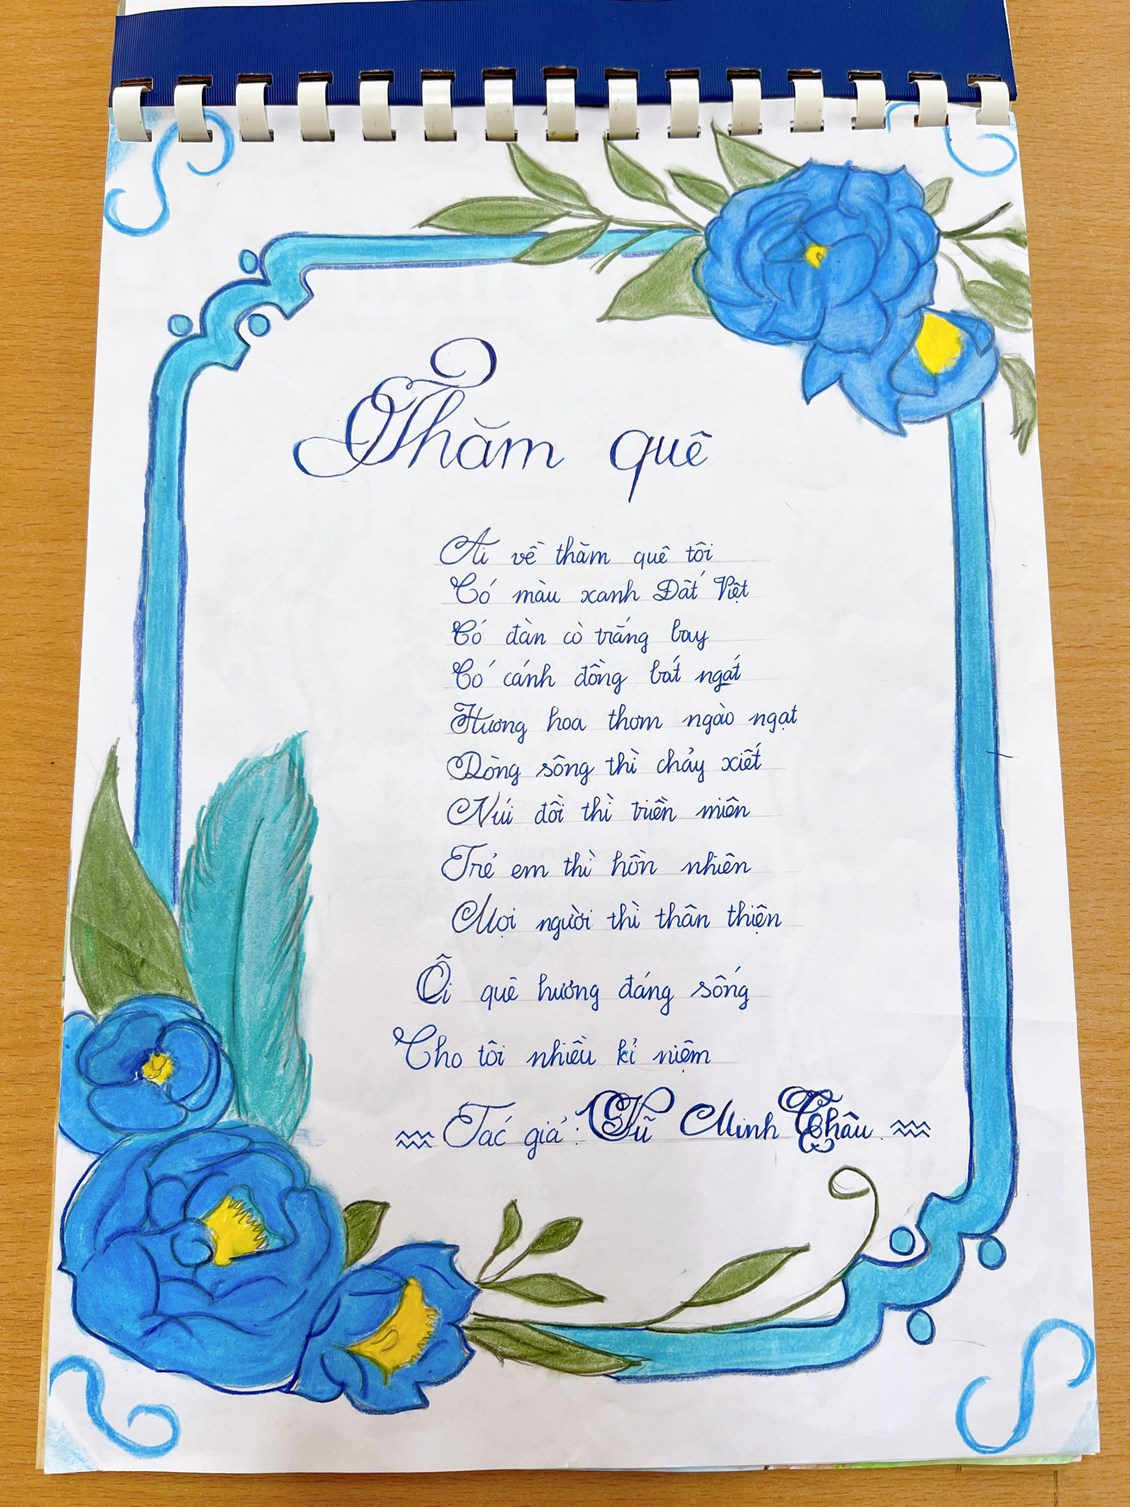 Thăm quê
Ai về thăm quê tôi
Có màu xanh Đất Việt
Có đàn cò trắng bay
Có cánh đồng bát ngát
Hương hoa thơm ngào ngạt
Dòng sông thì chảy xiết
Núi đồi thì triền miên
Trẻ em thì hồn nhiên
Mọi người thì thân thiện
Ôi quê hương đáng sống
Cho tôi nhiều kỉ niệm
Tác giả: Vũ Minh Châu.